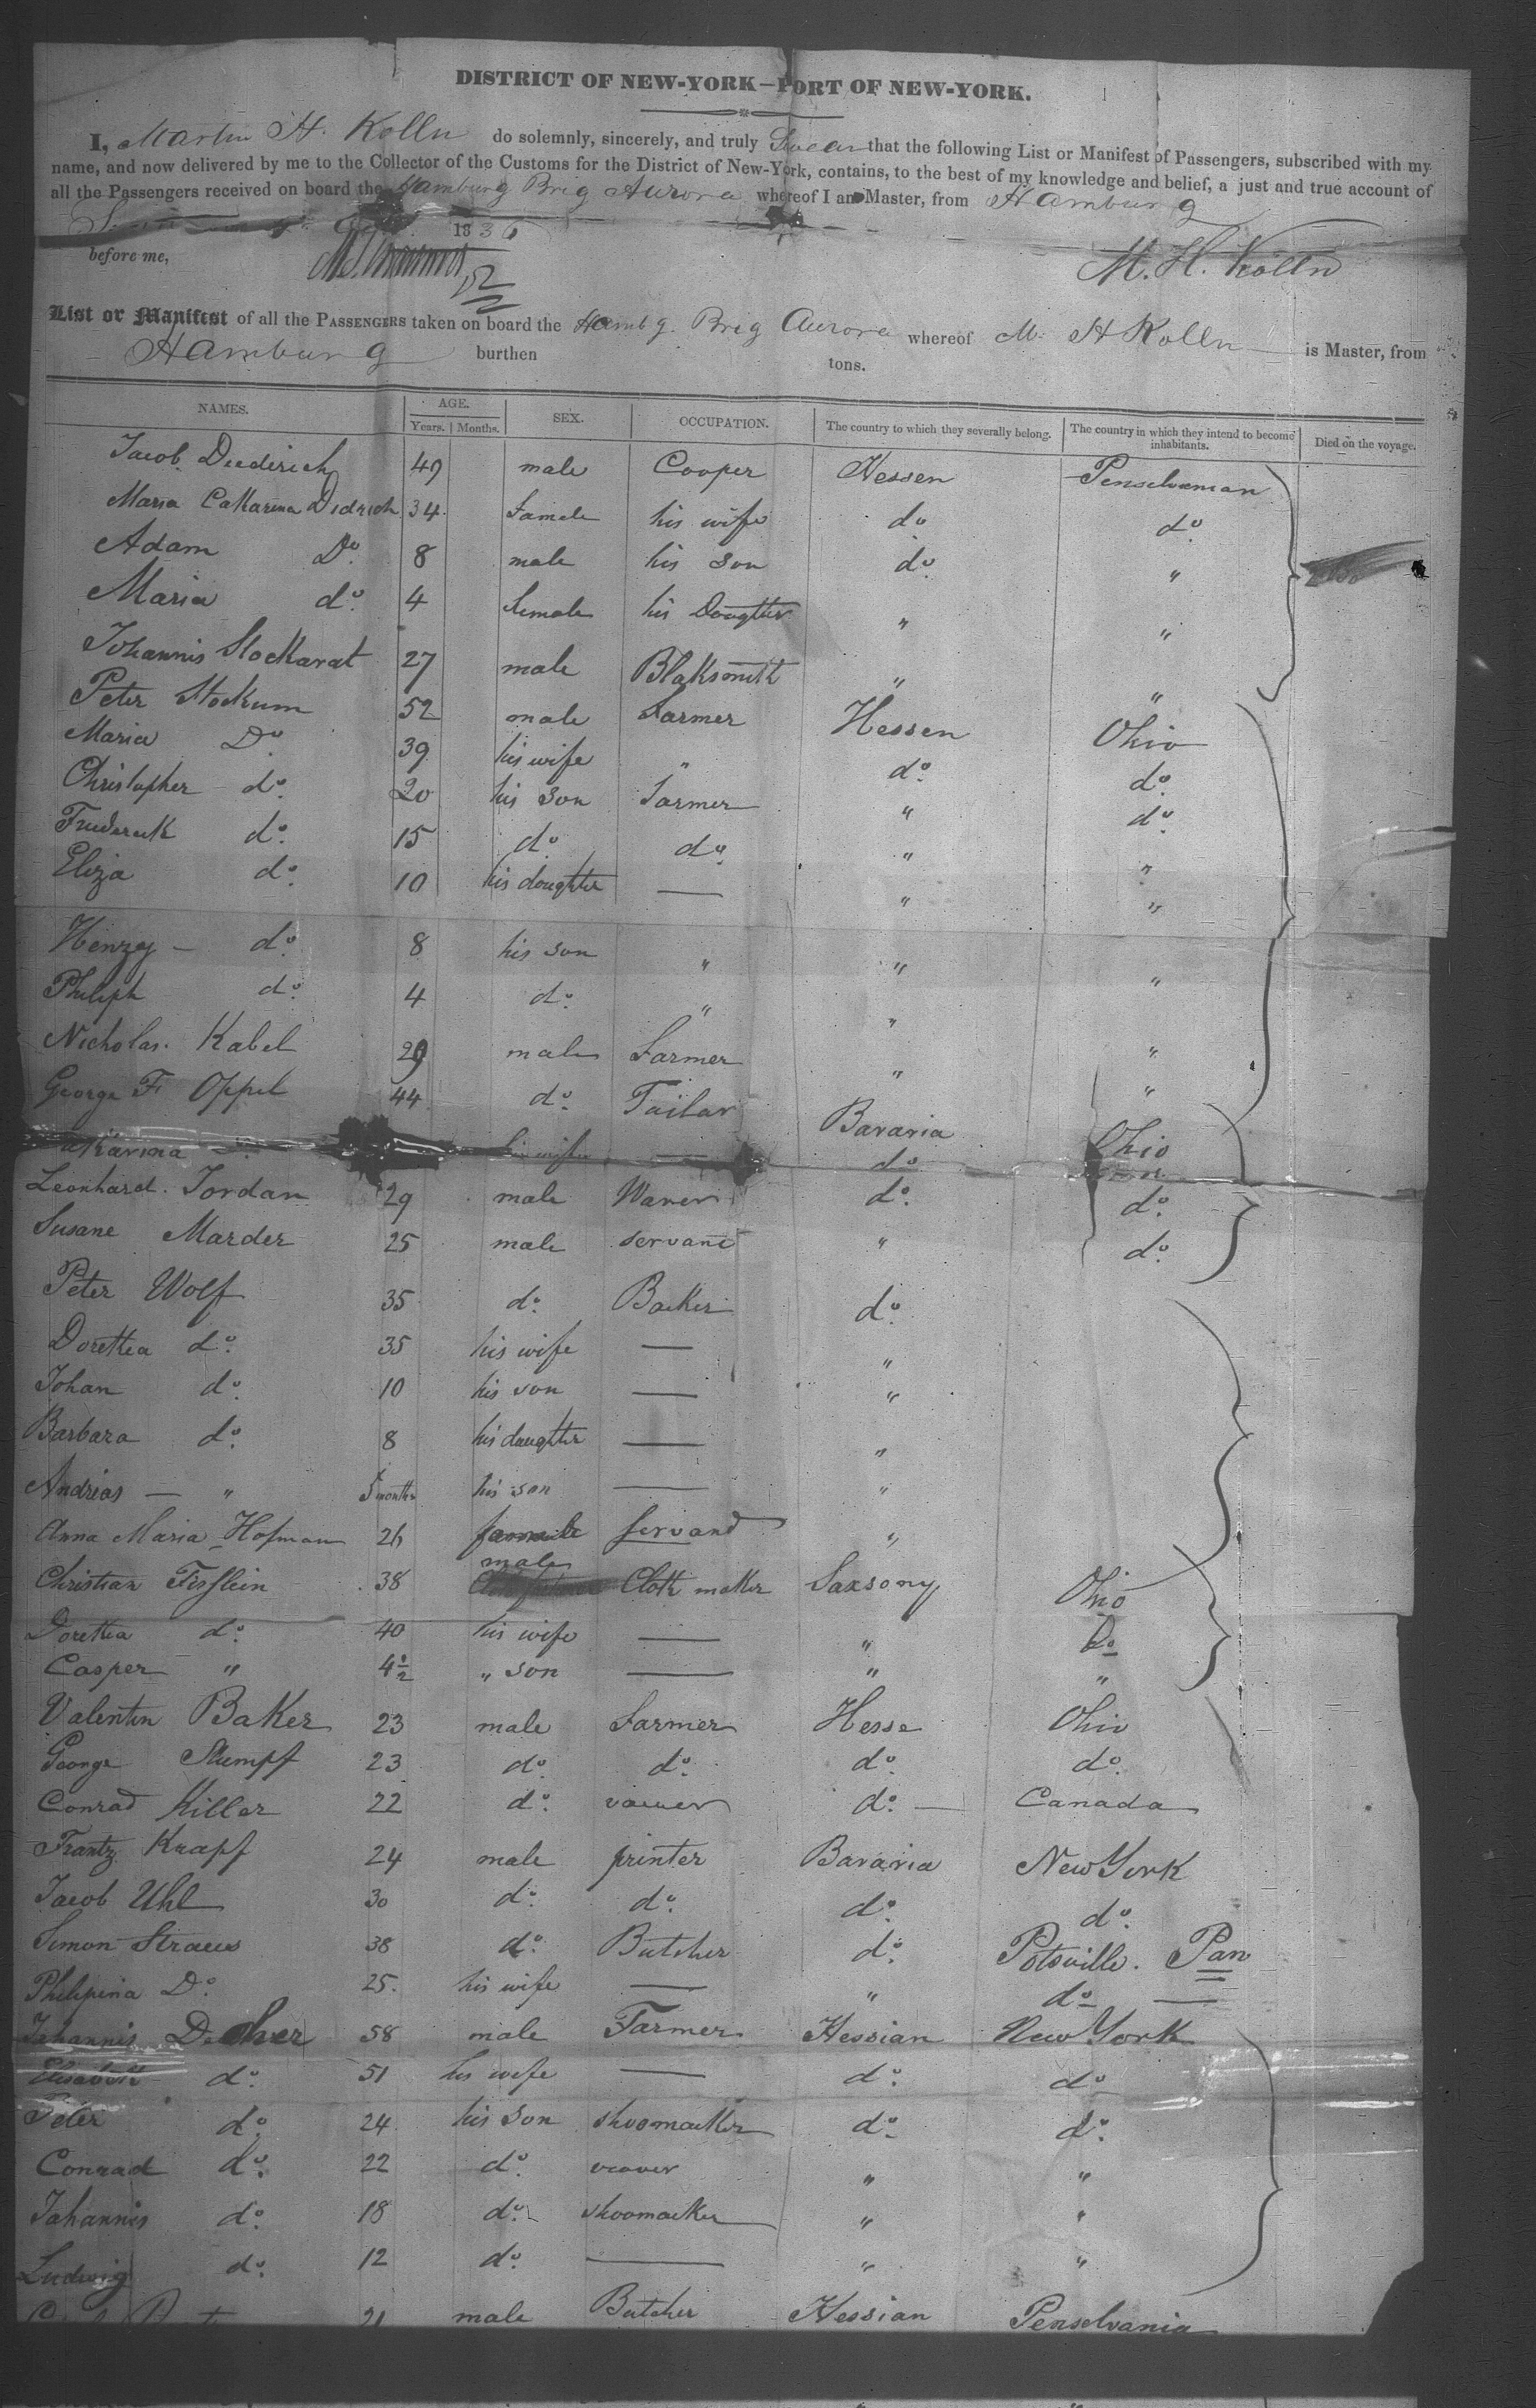 DISTRICT OF NEW-YORK—PORT OF NEW-YORK.
I, Martin H. Kolln do solemnly, sincerely, and truly Swear that the following List or Manifest of Passengers, subscribed with my
name, and now delivered by me to the Collector of the Customs for the District of New-York, contains, to the best of my knowledge and belief, a just and true account of
all the Passengers received on board the Hamburg Brig Aurora whereof I am Master, from Hamburg
1836
before me,
M. H. Kolln
List or Manifest of all the PASSENGERS taken on board the Hambg. Brig Aurora whereof M. H Kolln is Master, from
Hamburg burthen tons.
NAMES. AGE. Years. Months. SEX. OCCUPATION. The country to which they severally belong. The country in which they intend to become inhabitants. Died on the voyage.
Jacob Diederich 49 male Cooper Hessen Penselvanian
Maria Catharina Didrich 34 famele his wife do do
Adam Do 8 male his son do "
Maria do 4 female his Doughter " "
Johannis Stockarat 27 male Blaksmith " "
Peter Stockum 52 male Farmer Hessen Ohio
Maria Do 39 his wife " do do
Christopher do 20 his son Farmer " do
Frederick do 15 do do " "
Eliza do 10 his doughter — " "
Henzy — do 8 his son " " "
Philiph do 4 do " " "
Nicholas Kabel 29 male Farmer " "
George F Oppel 44 do Tailor Bavaria Ohio
his wife — do
Leonhard Jordan 29 male Waner do do
Susane Marder 25 male servant " do
Peter Wolf 35 do Backer do
Dorettea do 35 his wife — "
Johan do 10 his son — "
Barbara do 8 his daughter — "
Andrias — " 5 months his son — "
Anna Maria Hofman 26 famele servand "
Christian Fisslein 38 male Cloth maker Saxsony Ohio
Dorettea do 40 his wife — " Do
Casper " 4½ " son — " "
Valentin Baker 23 male Farmer Hesse Ohio
George Stumpf 23 do do do do
Conrad Killer 22 do do — Canada
Frantz Knapf 24 male printer Bavaria New York
Jacob Uhl 30 do do do do
Simon Straus 38 do Butcher do Potsville. Pan
Philipina Do 25. his wife — " do —
Johannis Decher 58 male Farmer Hessian New York
Elisabeth do 51 his wife — do do
Peter do 24 his son shoomacker do do
Conrad do 22 do weaver " "
Johannis do 18 do shoomacker " "
Ludwig do 12 do — " "
21 male Butcher Hessian Penselvania